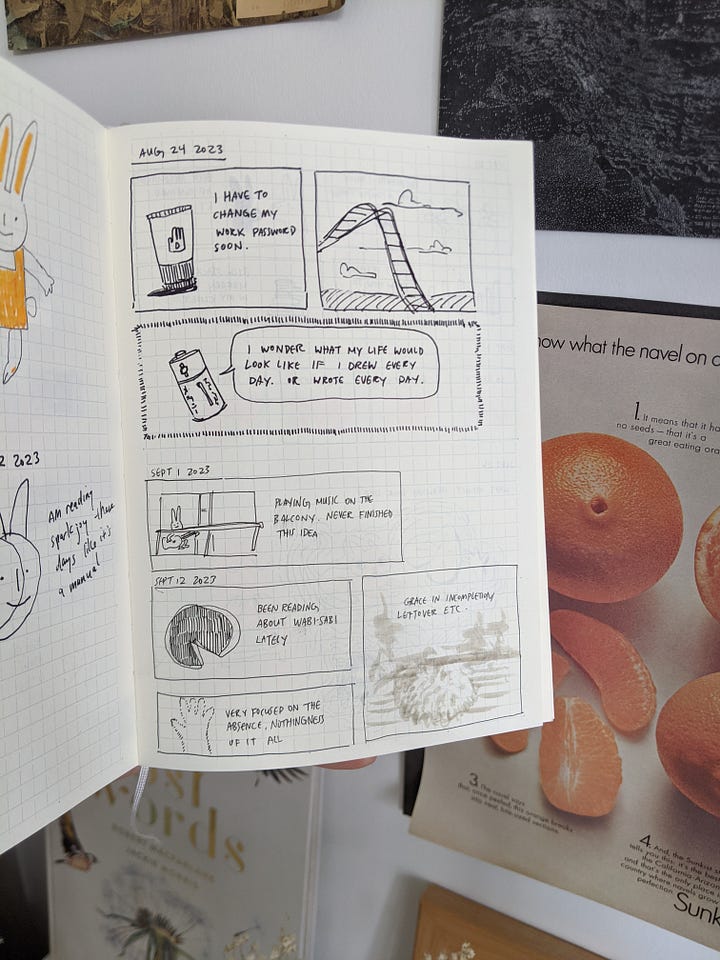 AUG 24 2023
I HAVE TO
CHANGE MY
WORK PASSWORD
SOON.
I WONDER WHAT MY LIFE WOULD
LOOK LIKE IF I DREW EVERY
DAY. OR WROTE EVERY DAY.
SEPT 1 2023
PLAYING MUSIC ON THE
BALCONY. NEVER FINISHED
THIS IDEA
SEPT 12 2023
BEEN READING
ABOUT WABI-SABI
LATELY
GRACE IN INCOMPLETION,
LEFTOVER ETC.
VERY FOCUSED ON THE
ABSENCE, NOTHINGNESS
OF IT ALL
2 2023
AM reading
spark joy these
days like it's
a manual
now what the navel on
1. It means that it ha
no seeds — that it's a
great eating ora
3. The navel says
that once peeled, this orange breaks
into neat, bite-sized sections.
4. And, the Sunkist
tells you this: it's the be
the California-Arizona
and that's the only place
country where navels grow
perfection.
Sunk
ost
words